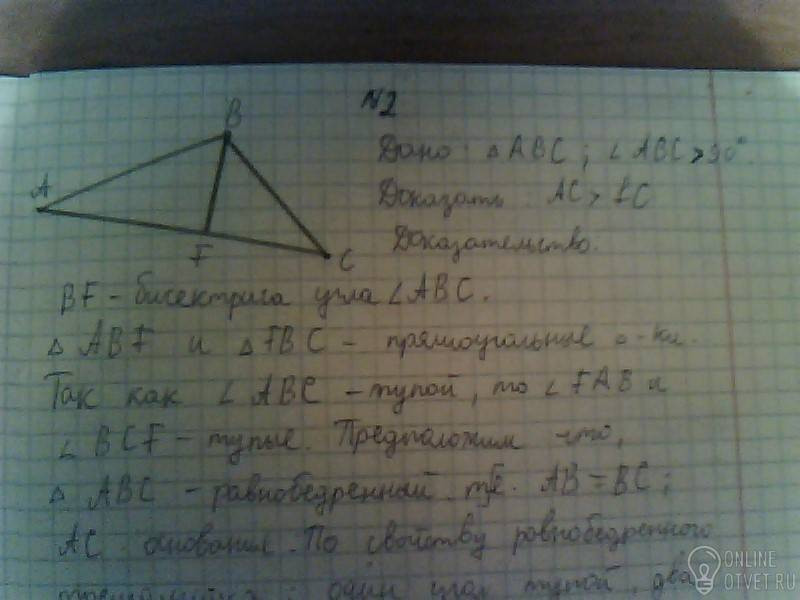 N2
B
Дано: △ABC; ∠ABC>90°.
A
Доказать AC>FC
Доказательство.
F
C
BF - бисектриса угла ∠ABC.
△ABF и △FBC - прямоугольные △-ки.
Так как ∠ABC - тупой, то ∠FAB и
∠BCF - тупые. Предположим что,
△ABC - равнобедренный т.е. AB=BC;
AC основание. По свойству равнобедренного
один угол тупой, два
ONLINE
OTVET.RU